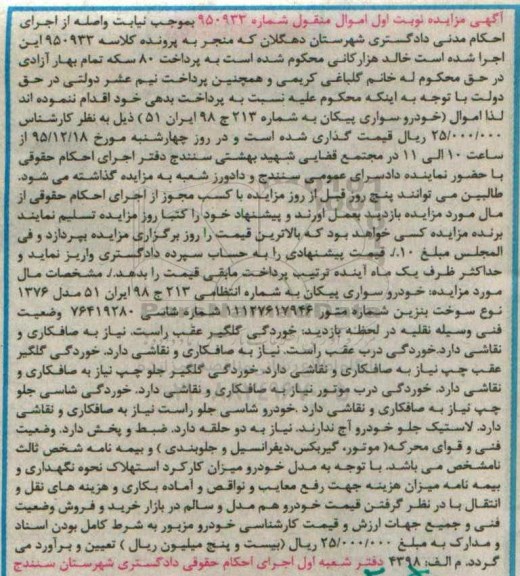 آگهی مزایده نوبت اول اموال منقول شماره ۹۵۰۹۳۳ بموجب نیابت واصله از اجرای
احکام مدنی دادگستری شهرستان دهگلان که منجر به پرونده کلاسه ۹۵۰۹۳۳ این
اجرا شده است خالد هزارکانی محکوم شده است به پرداخت ۸۰ سکه تمام بهار آزادی
در حق محکوم له خانم گلباغی کریمی و همچنین پرداخت نیم عشر دولتی در حق
دولت با توجه به اینکه محکوم علیه نسبت به پرداخت بدهی خود اقدام ننموده اند
لذا اموال (خودرو سواری پیکان به شماره ۲۱۳ ج ۹۸ ایران ۵۱ ) ذیل به نظر کارشناس
۲۵/۰۰۰/۰۰۰ ریال قیمت گذاری شده است و در روز چهارشنبه مورخ ۹۵/۱۲/۱۸ از
ساعت ۱۰ الی ۱۱ در مجتمع قضایی شهید بهشتی سنندج دفتر اجرای احکام حقوقی
با حضور نماینده دادسرای عمومی سنندج و دادورز شعبه به مزایده گذاشته می شود.
طالبین می توانند پنج روز قبل از روز مزایده با کسب مجوز از اجرای احکام حقوقی از
مال مورد مزایده بازدید بعمل آورند و پیشنهاد خود را کتبا روز مزایده تسلیم نمایند
برنده مزایده کسی خواهد بود که بالاترین قیمت را روز برگزاری مزایده بپردازد و فی
المجلس مبلغ ۱۰٪ قیمت پیشنهادی را به حساب سپرده دادگستری واریز نماید و
حداکثر ظرف یک ماه آینده ترتیب پرداخت مابقی قیمت را بدهد./ مشخصات مال
مورد مزایده: خودرو سواری پیکان به شماره انتظامی ۲۱۳ ج ۹۸ ایران ۵۱ مدل ۱۳۷۶
نوع سوخت بنزین شماره متور ۱۱۱۲۷۶۱۷۹۴۶ شماره شاسی ۷۶۴۱۹۲۸۰ وضعیت
فنی وسیله نقلیه در لحظه بازدید: خوردگی گلگیر عقب راست. نیاز به صافکاری و
نقاشی دارد.خوردگی درب عقب راست. نیاز به صافکاری و نقاشی دارد. خوردگی گلگیر
عقب چپ نیاز به صافکاری و نقاشی دارد. خوردگی گلگیر جلو چپ نیاز به صافکاری و
نقاشی دارد. خوردگی درب موتور نیاز به صافکاری و نقاشی دارد. خوردگی شاسی جلو
چپ نیاز به صافکاری و نقاشی دارد .خوردو شاسی جلو راست نیاز به صافکاری و نقاشی
دارد. لاستیک جلو خودرو آج ندارند. نیاز به دو حلقه دارد. ضبط و پخش دارد. وضعیت
فنی و قوای محرکه( موتور، گیربکس،دیفرانسیل و جلوبندی ) و بیمه نامه شخص ثالث
نامشخص می باشد. با توجه به مدل خودرو میزان کارکرد استهلاک نحوه نگهداری و
بیمه نامه میزان هزینه جهت رفع معایب و نواقص و آماده بکاری و هزینه های نقل و
انتقال با در نظر گرفتن قیمت خودرو هم مدل و سالم در بازار خرید و فروش وضعیت
فنی و جمیع جهات ارزش و قیمت کارشناسی خودرو مزبور به شرط کامل بودن اسناد
و مدارک به مبلغ ۲۵/۰۰۰/۰۰۰ ریال (بیست و پنج میلیون ریال ) تعیین و برآورد می
گردد. م الف: ۴۳۹۸ دفتر شعبه اول اجرای احکام حقوقی دادگستری شهرستان سنندج